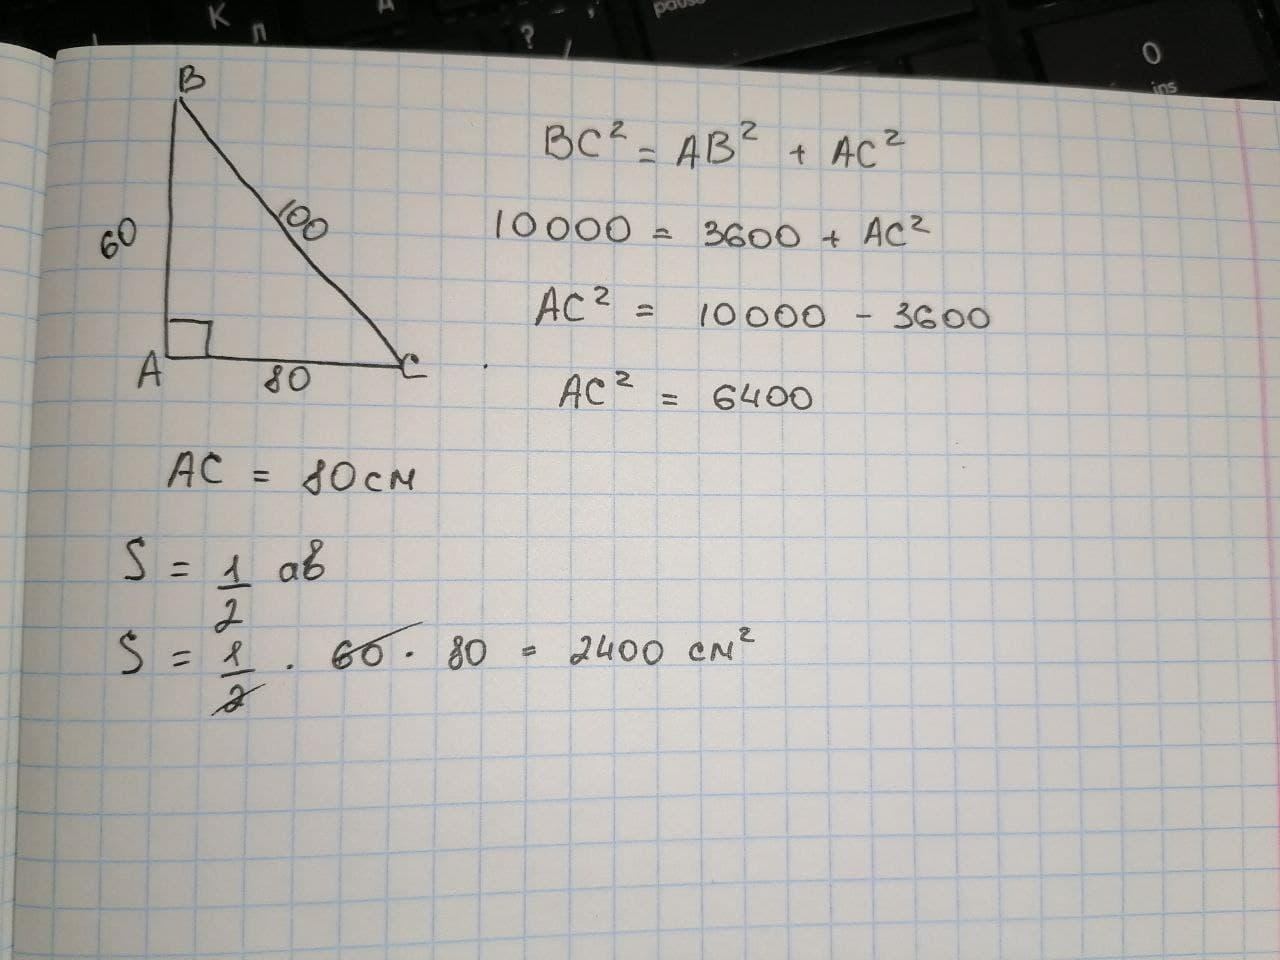 К
Л
Д
?
pause
0
ins
B
60
100
A
80
C
BC² = AB² + AC²
10000 = 3600 + AC²
AC² = 10000 - 3600
AC² = 6400
AC = 80см
S = 1/2 ab
S = 1/2 · 60 · 80 = 2400 см²